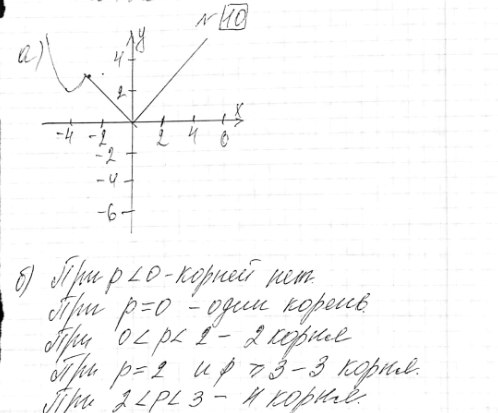 № 10
а)
y
4
2
-4 -2 2 4 6 x
-2
-4
-6
б) При p < 0 - корней нет.
При p = 0 - один корень.
При 0 < p < 2 - 2 корня
При p = 2 и p ≥ 3 - 3 корня.
При 2 < p < 3 - 4 корня.